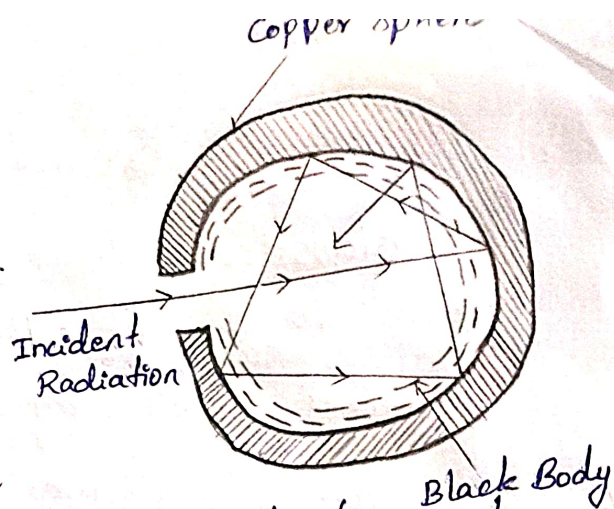 Copper sphere
Incident
Radiation
Black Body